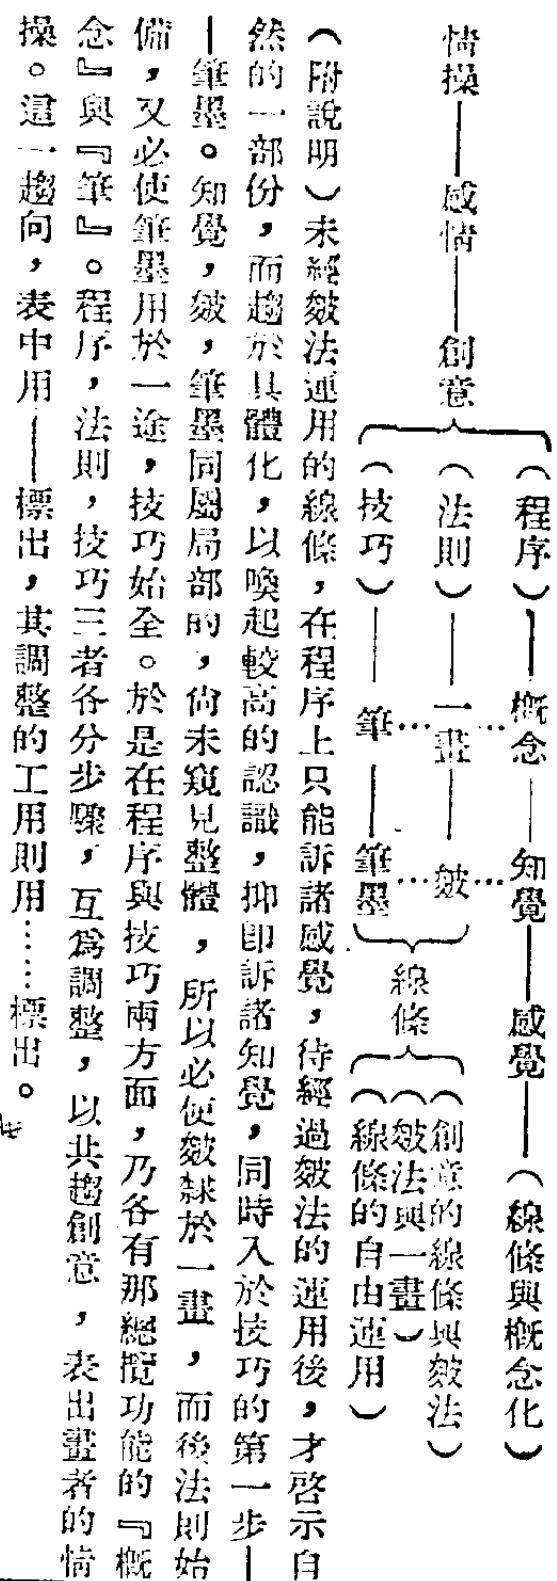 (程序)——概念——知覺——感覺——(線條與概念化)
(創意的線條與皴法)
情操——感情——創意
(法則)——一畫——皴
(皴法與一畫)
(技巧)——筆——筆墨
線條
(線條的自由運用)
(附說明)未經皴法運用的線條,在程序上只能訴諸感覺,待經過皴法的運用後,才啓示自
然的一部份,而趨於具體化,以喚起較高的認識,抑卽訴諸知覺,同時入於技巧的第一步—
—筆墨。知覺,皴,筆墨同屬局部的,尙未窺見整體,所以必使皴隸於一畫,而後法則始
備,又必使筆墨用於一途,技巧始全。於是在程序與技巧兩方面,乃各有那總攬功能的『概
念』與『筆』。程序,法則,技巧三者各分步驟,互爲調整,以共趨創意,表出畫者的情
操。這一趨向,表中用——標出,其調整的工用則用……標出。